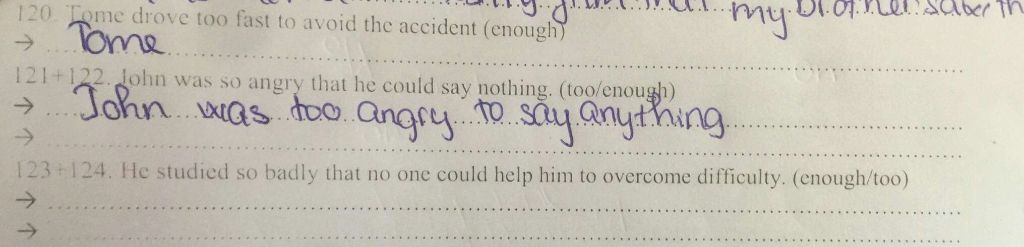 my brother
120. Tome drove too fast to avoid the accident (enough)
→ Tome
121+122. John was so angry that he could say nothing. (too/enough)
→ John was too angry to say anything
→
123+124. He studied so badly that no one could help him to overcome difficulty. (enough/too)
→
→